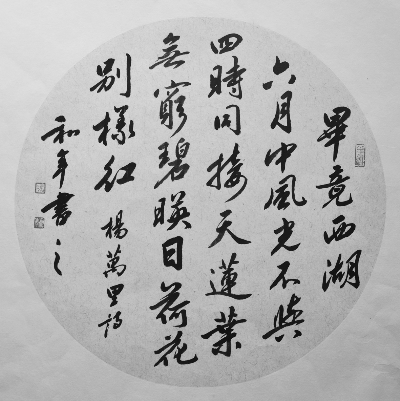 畢竟西湖
六月中風光不與
四時同接天蓮葉
無窮碧暎日荷花
別樣紅 楊萬里詩
和年書之